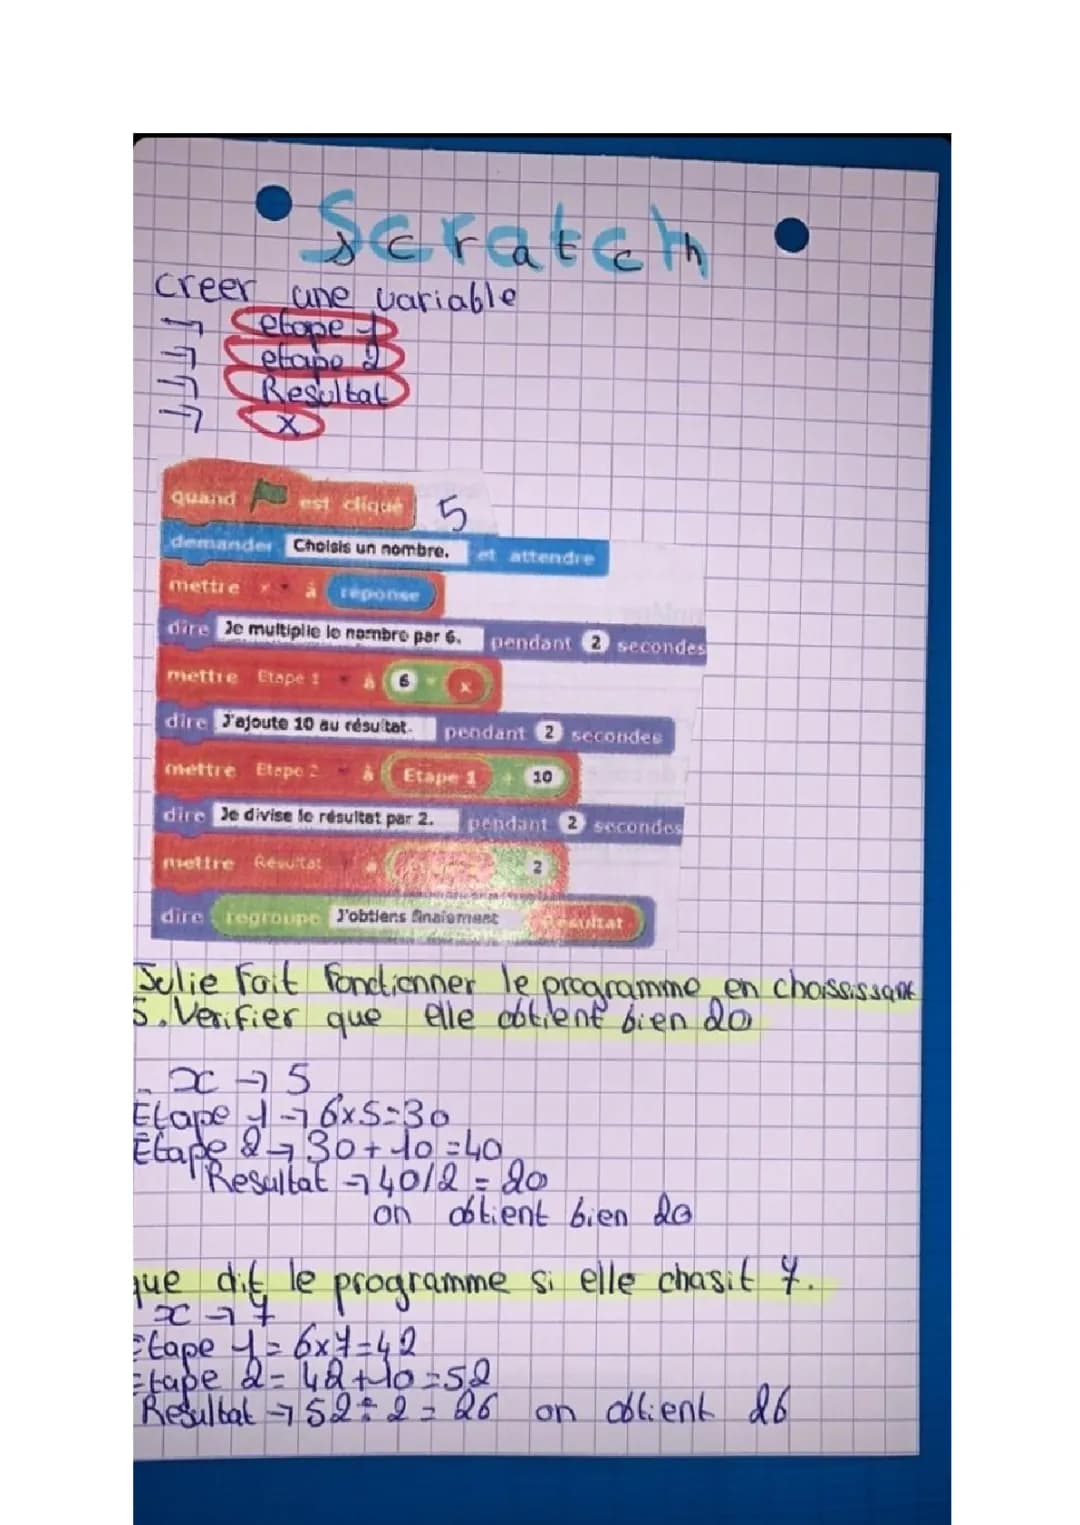 Scratch
creer une variable
→ etape 1
→ etape 2
→ Resultat
→ x
quand est cliqué 5
demander Choisis un nombre. et attendre
mettre x à réponse
dire Je multiplie le nombre par 6. pendant 2 secondes
mettre Etape 1 à 6 * x
dire J'ajoute 10 au résultat. pendant 2 secondes
mettre Etape 2 à Etape 1 + 10
dire Je divise le résultat par 2. pendant 2 secondes
mettre Résultat à 2
dire regroupe J'obtiens finalement Résultat
Julie fait fonctionner le programme en choississant
5. Verifier que elle obtient bien 20
- x → 5
Etape 1 → 6x5=30
Etape 2 → 30+10=40
Resultat → 40/2 = 20
on obtient bien 20
que dit le programme si elle chasit 7.
x → 7
Etape 1 = 6x7=42
Etape 2 = 42+10=52
Resultat → 52÷2 = 26 on obtient 26